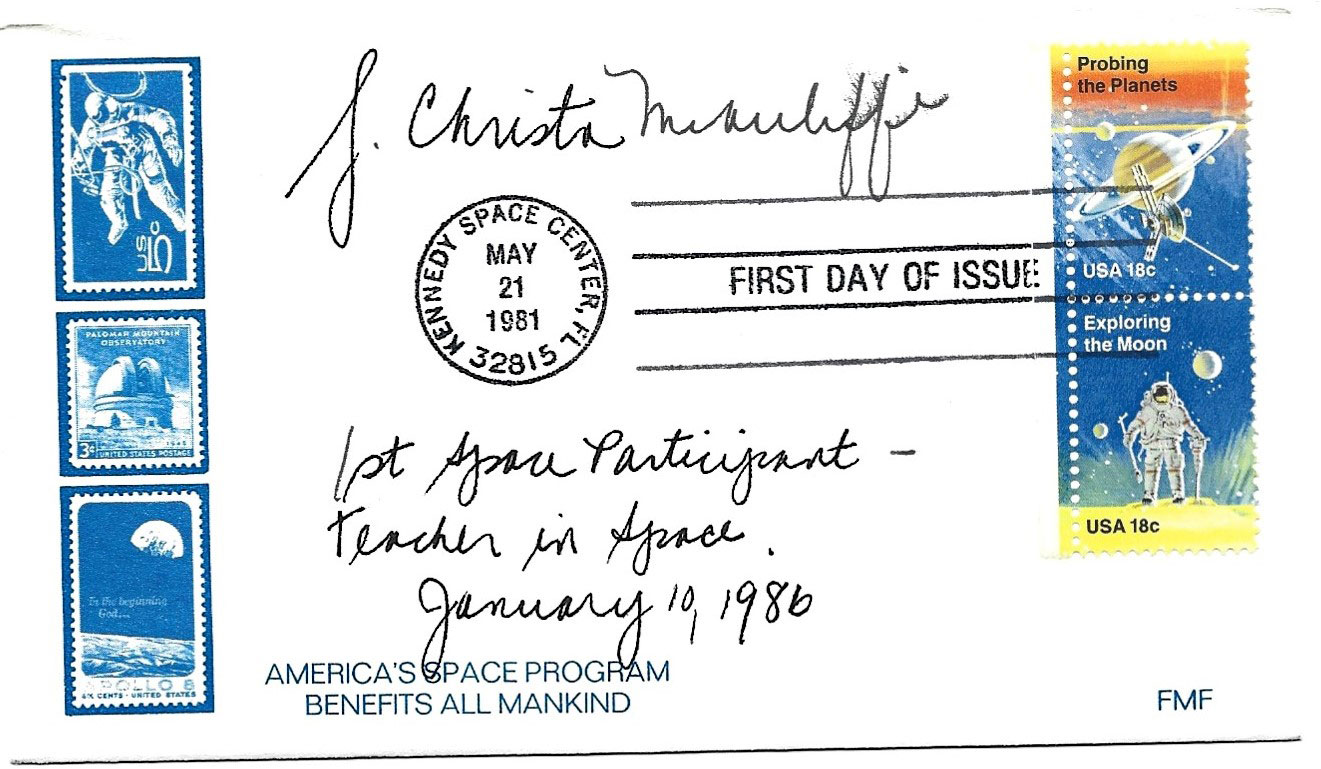 S. Christa McAuliffe
Probing
the Planets
USA 18c
KENNEDY SPACE CENTER, FL 32815
MAY
21
1981
FIRST DAY OF ISSUE
Exploring
the Moon
USA 18c
US
5c
PALOMAR MOUNTAIN
OBSERVATORY
3¢
UNITED STATES POSTAGE
In the beginning
God...
APOLLO 8
SIX CENTS · UNITED STATES
1st Space Participant —
Teacher in Space.
January 10, 1986
AMERICA'S SPACE PROGRAM
BENEFITS ALL MANKIND
FMF